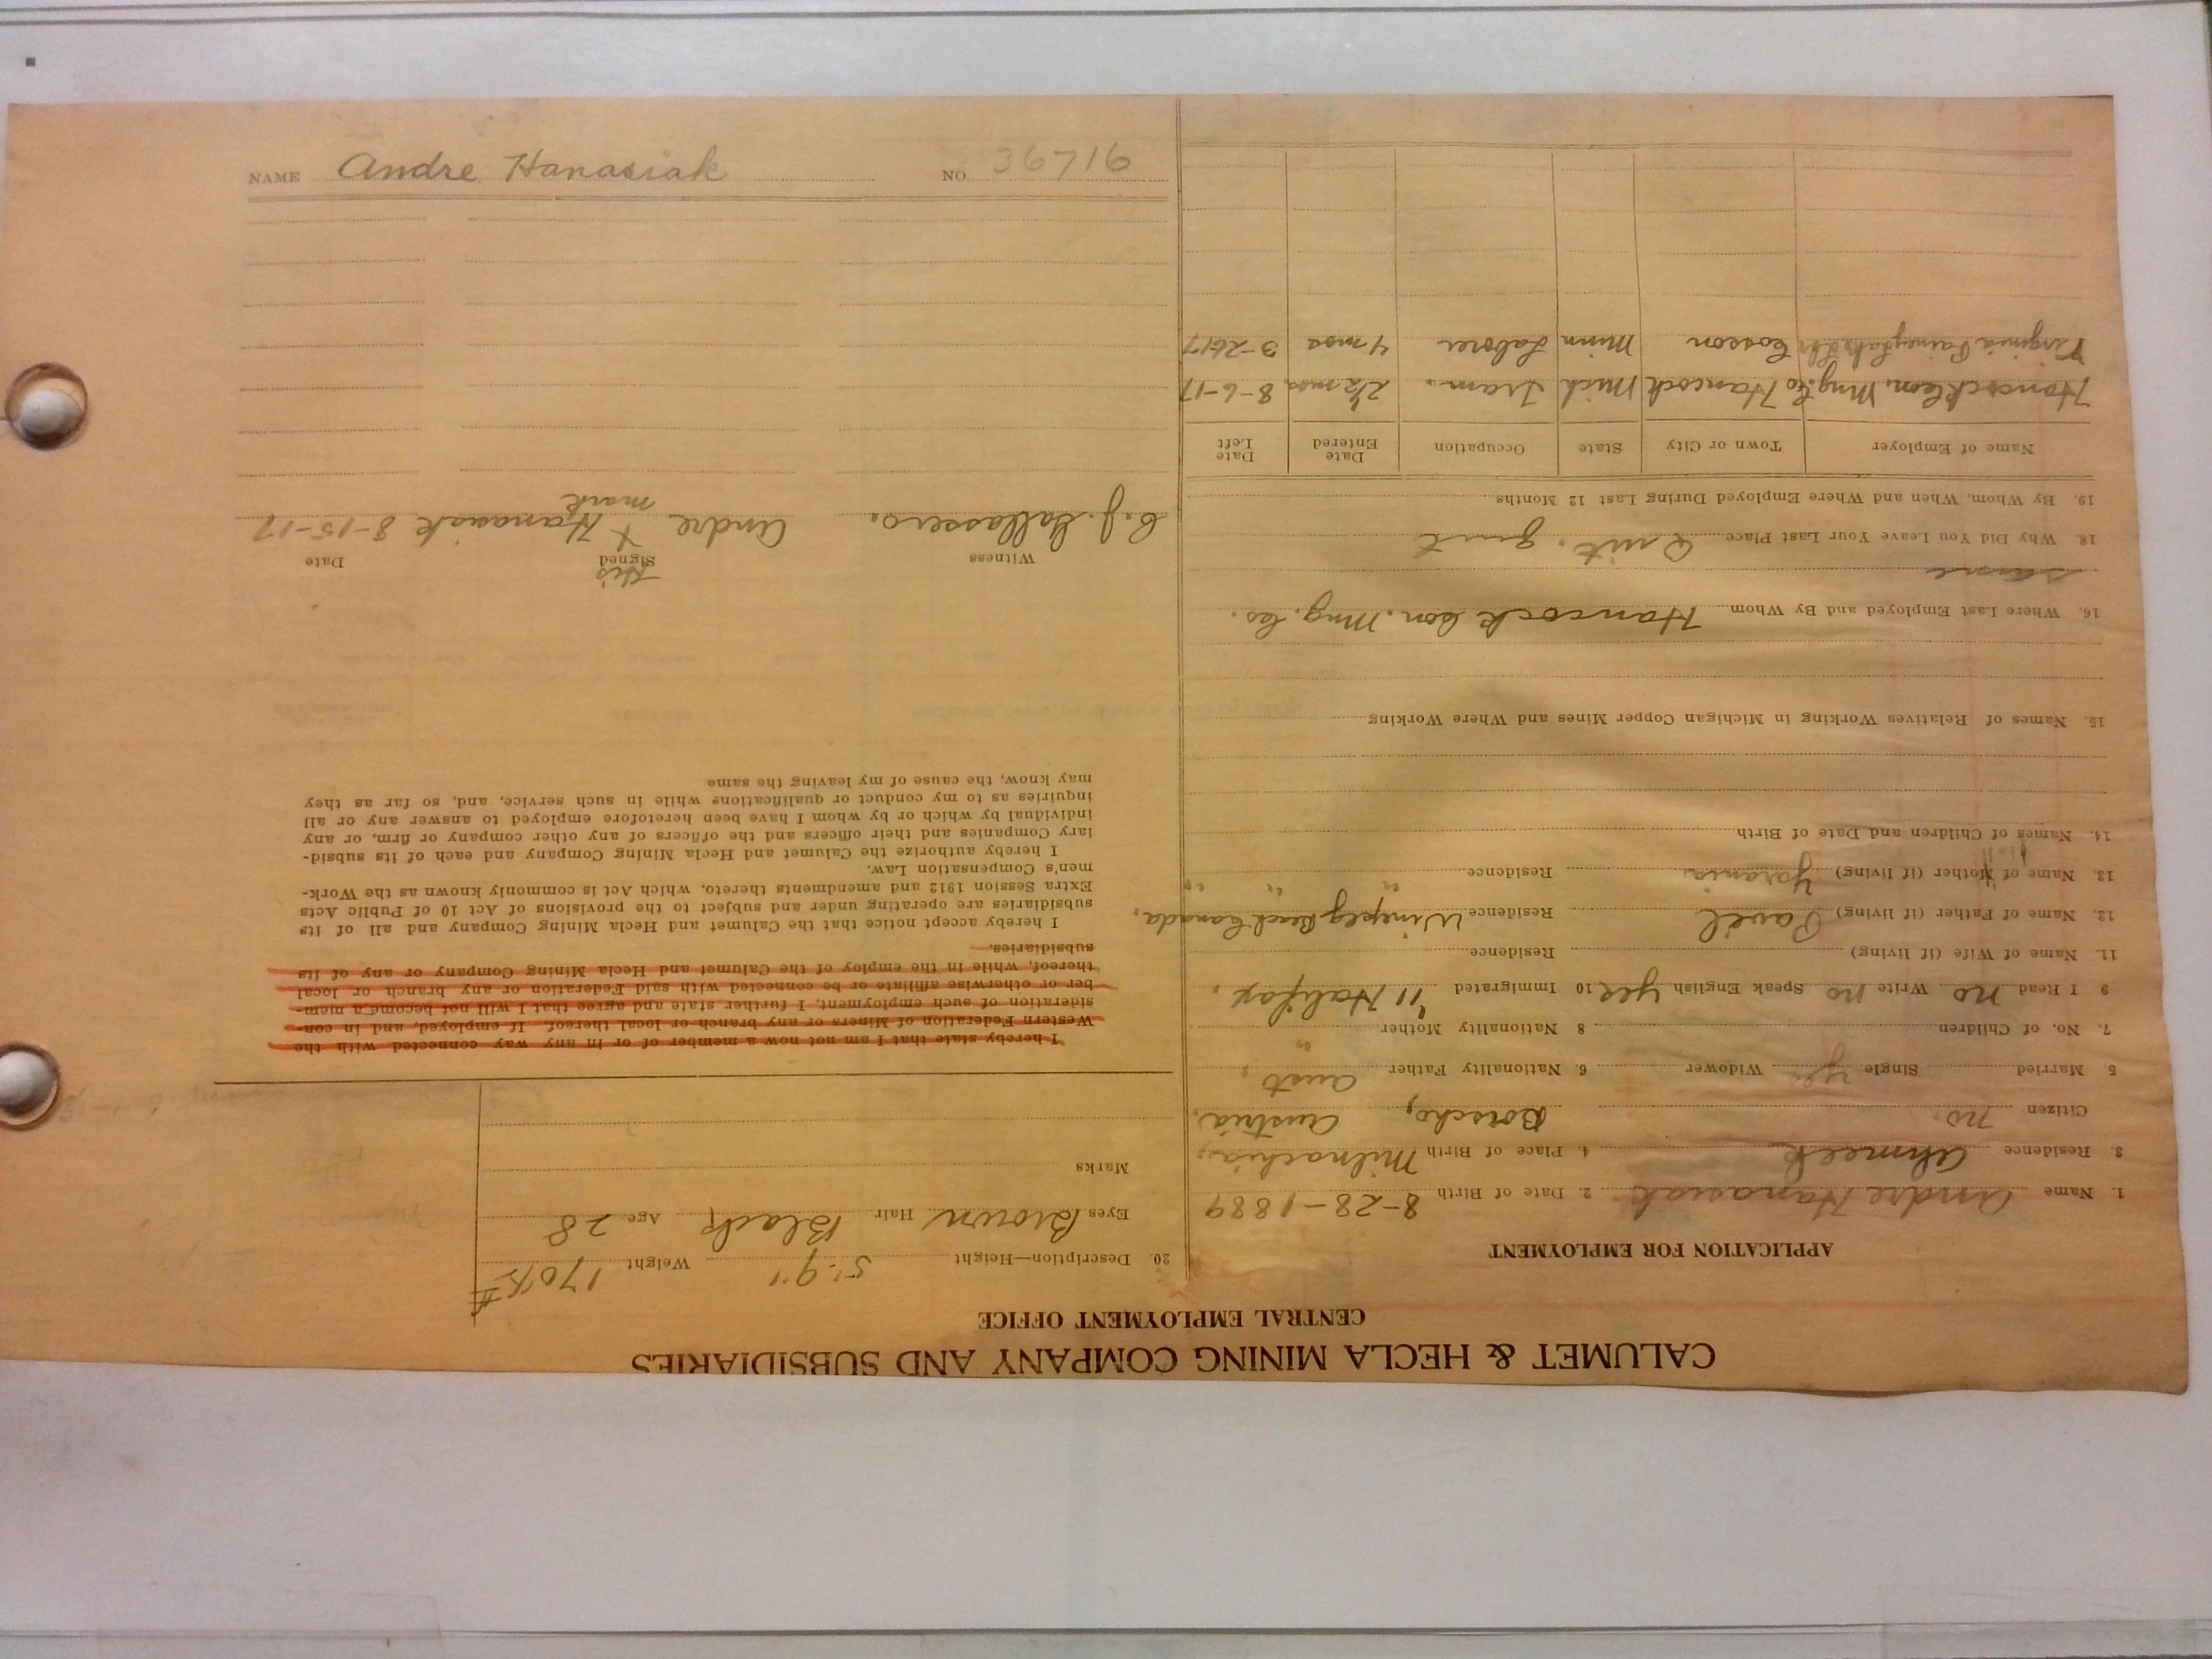 CALUMET & HECLA MINING COMPANY AND SUBSIDIARIES
CENTRAL EMPLOYMENT OFFICE
APPLICATION FOR EMPLOYMENT
1. Name Andre Hanasiak 2. Date of Birth 8-28-1889
3. Residence Ahmeek 4. Place of Birth Milnachia,
Citizen no. Borscho, Austria.
5. Married Single yes Widower 6. Nationality Father Aust,
7. No. of Children 8 Nationality Mother "
9 I Read no Write no Speak English yes 10 Immigrated '11 Halifax,
11. Name of Wife (if living) Residence
12. Name of Father (if living) Pavil Residence Winepeg Beach Canada.
13. Name of Mother (if living) Yarania Residence " " "
14. Names of Children and Date of Birth
15. Names of Relatives Working in Michigan Copper Mines and Where Working
16. Where Last Employed and By Whom Hancock Con. Mng. Co.
same
18. Why Did You Leave Your Last Place Quit. quit
19. By Whom, When and Where Employed During Last 12 Months
Name of Employer Town or City State Occupation Date Entered Date Left
Hancock Con. Mng. Co Hancock Mich Tram. 2½ mos 8-6-17
Virginia Rainey Lake Cosson Minn Laborer 4 mos 3-2-17
20. Description—Height 5'.9" Weight 170 lbs #
Eyes Brown Hair Black Age 28
Marks
I hereby state that I am not now a member of or in any way connected with the
Western Federation of Miners or any branch or local thereof. If employed, and in con-
sideration of such employment, I further state and agree that I will not become a mem-
ber or otherwise affiliate or be connected with said Federation or any branch or local
thereof, while in the employ of the Calumet and Hecla Mining Company or any of its
subsidiaries.
I hereby accept notice that the Calumet and Hecla Mining Company and all of its
subsidiaries are operating under and subject to the provisions of Act 10 of Public Acts
Extra Session 1912 and amendments thereto, which Act is commonly known as the Work-
men's Compensation Law.
I hereby authorize the Calumet and Hecla Mining Company and each of its subsid-
iary Companies and their officers and the officers of any other company or firm, or any
individual by which or by whom I have been heretofore employed to answer any or all
inquiries as to my conduct or qualifications while in such service, and, so far as they
may know, the cause of my leaving the same
Witness Signed Date
His
C. J. Gallassero. Andre X Hanasiak 8-15-17
mark
NAME Andre Hanasiak NO. 36716